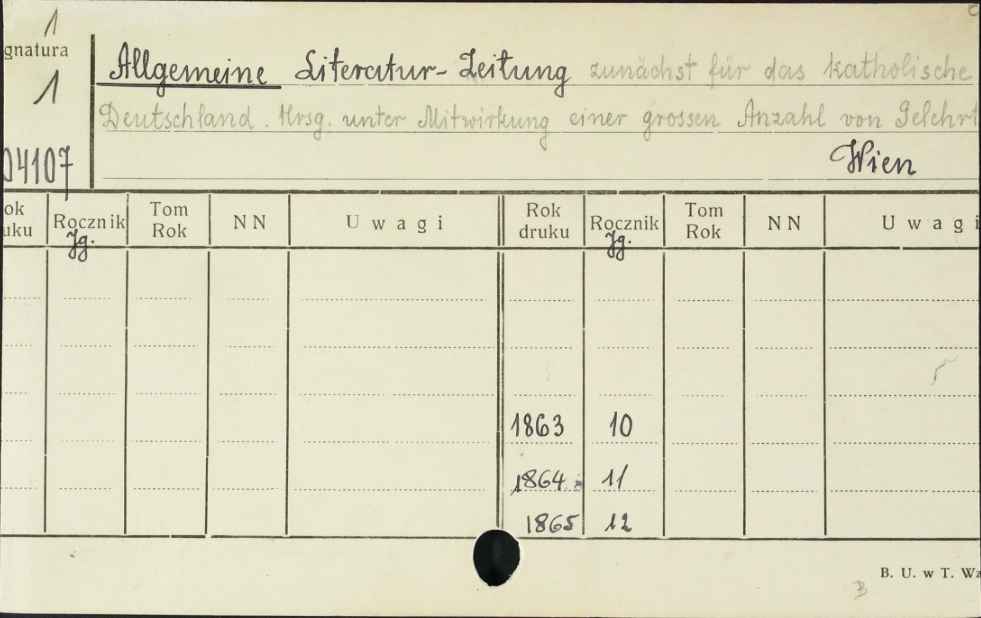 1
gnatura
1
04107
Allgemeine Literatur-Zeitung zunächst für das katholische
Deutschland. Hrsg. unter Mitwirkung einer grossen Anzahl von Gelehrt
Wien
ok uku Rocznik Jg. Tom Rok NN Uwagi Rok druku Rocznik Jg. Tom Rok NN Uwagi
1863 10
1864 11
1865 12
B. U. w T. Wz
B